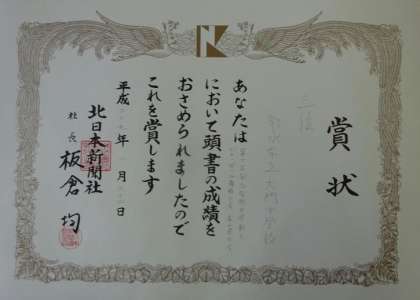 賞状
三位
大門中学校
あなたは
において頭書の成績を
おさめられましたので
これを賞します
平成 年 月 日
北日本新聞社
社長 板倉均